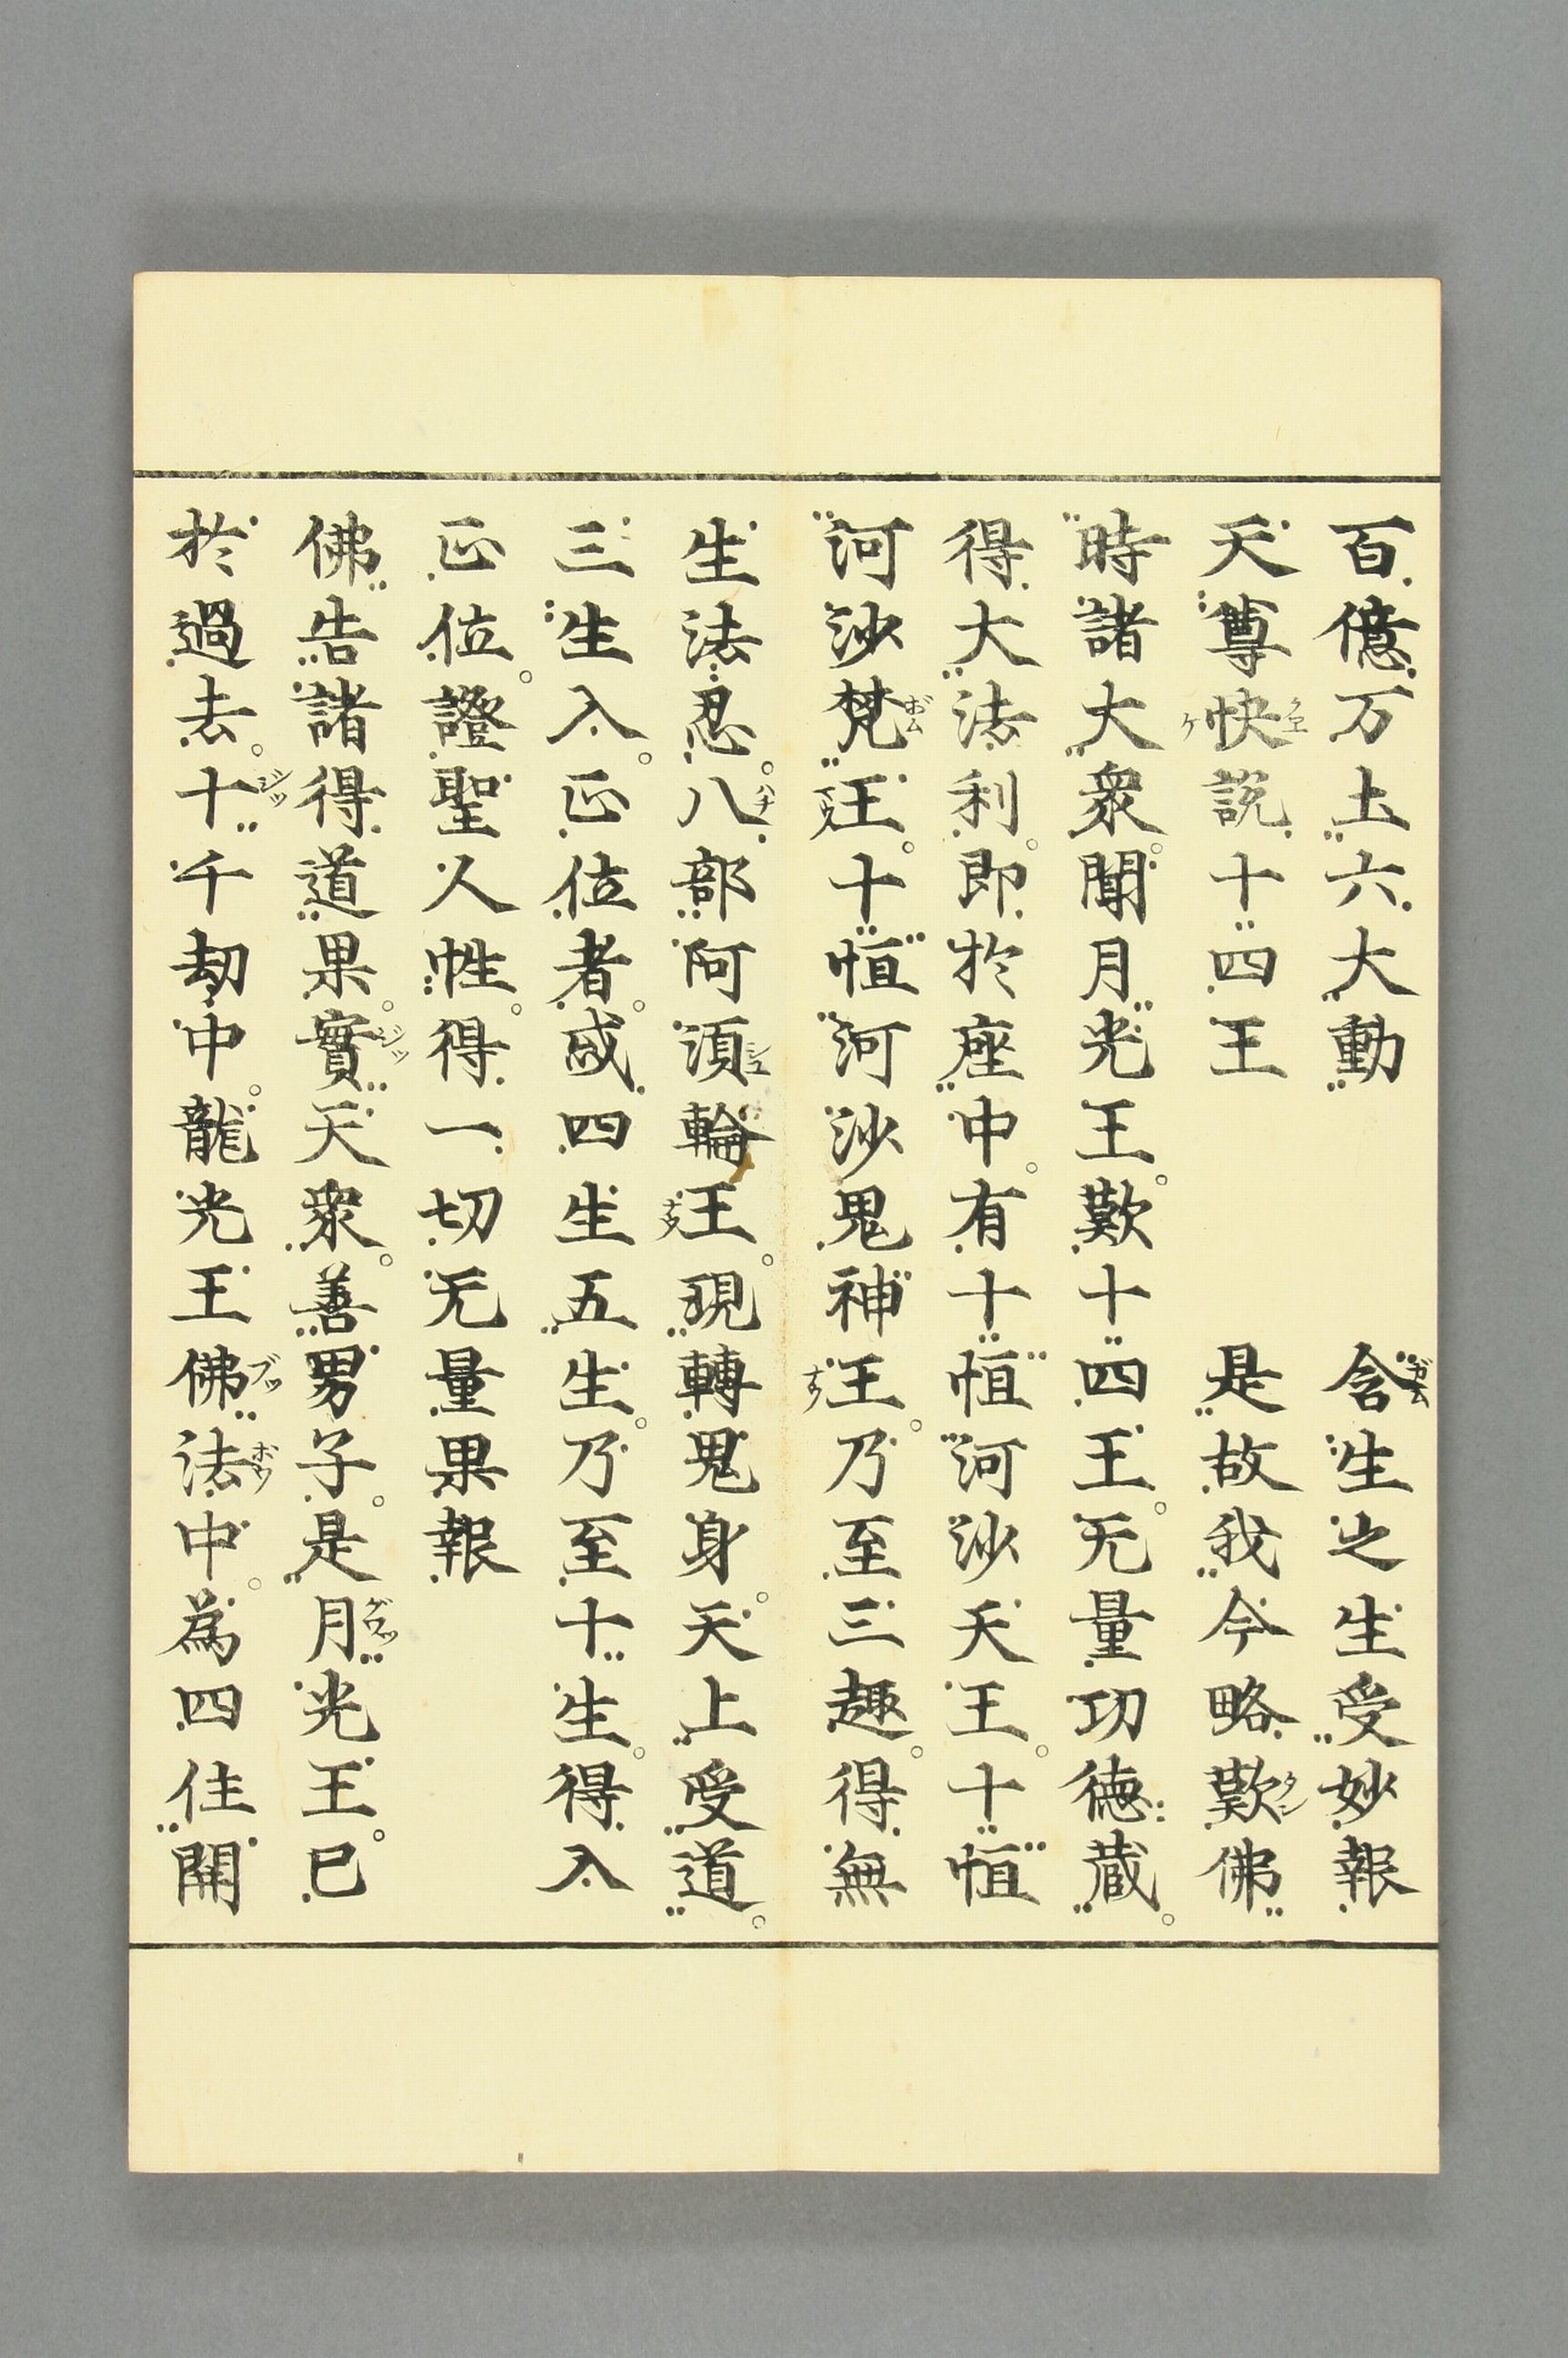 百億万土六大動　含生之生受妙報
天尊快説十四王　是故我今略歎佛
時諸大衆聞月光王歎十四王无量功徳蔵
得大法利即於座中有十恒河沙天王十恒
河沙梵王十恒河沙鬼神王乃至三趣得無
生法忍八部阿須輪王現轉鬼身天上受道
三生入正位者或四生五生乃至十生得入
正位證聖人性得一切无量果報
佛告諸得道果實天衆善男子是月光王已
於過去十千劫中龍光王佛法中為四住開